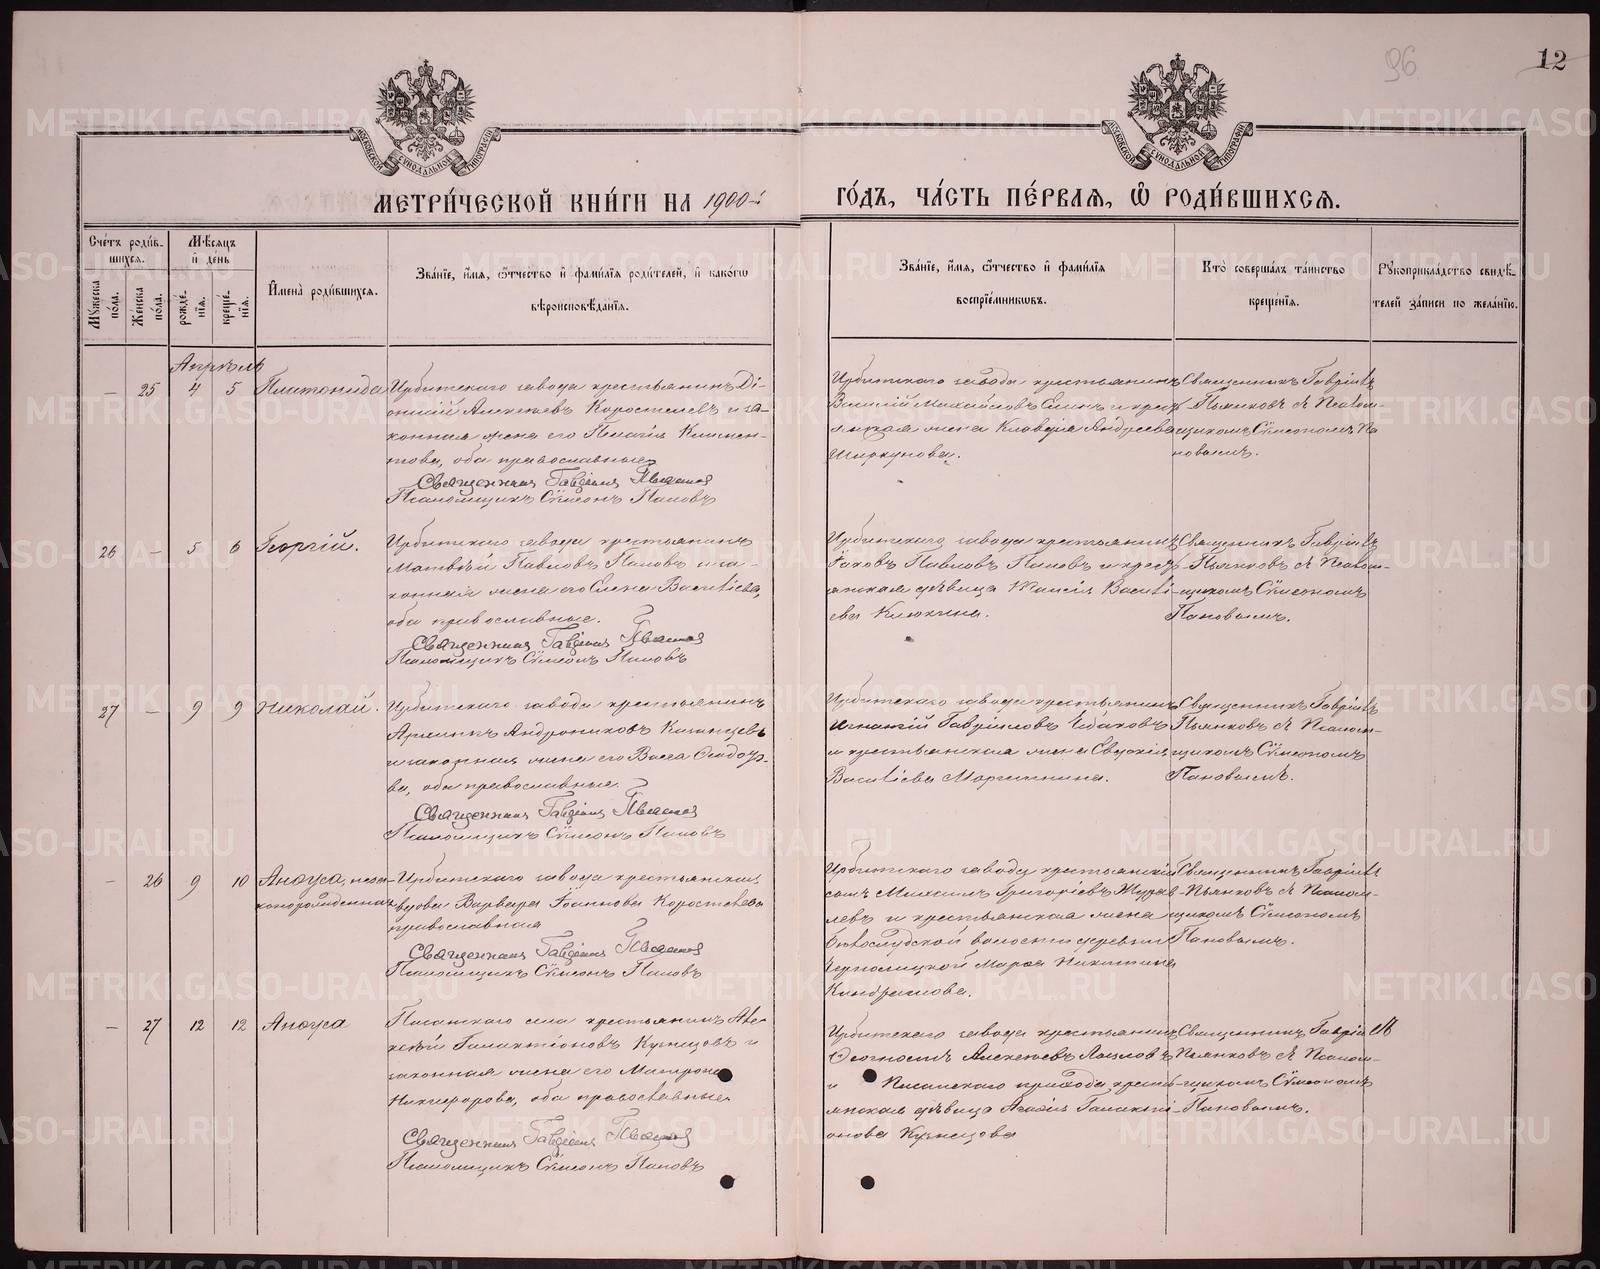 96
12
МЕТРИ́ЧЕСКОЙ КНИ́ГИ НА 1900-й
ГО́ДЪ, ЧА́СТЬ ПЕ́РВАѦ, Ѽ РОДИ́ВШИХСѦ.
Сче́тъ роди́в-
шихся.
Мꙋ́жеска пола.
Же́нска пола.
Мѣ́сяцъ
и҆ де́нь
рожде́-
нїя.
креще́-
нїя.
И҆мена̀ роди́вшихся.
Зва́нїе, и҆́мя, ѻ҆́тчество и҆ фами́лїя роди́телей, и҆ како́гѡ
вѣроисповѣ́данїя.
Зва́нїе, и҆́мя, ѻ҆́тчество и҆ фами́лїя
воспрїе́мниковъ.
Кто̀ соверша́лъ та́инство
креще́нїя.
Рꙋкоприкла́дство свидѣ́-
телей за́писи по жела́нїю.
Апрѣль
— 25 4 5 Платонида
Ирбитскаго завода крестьянинъ Ді-
онисій Алексѣевъ Коростелевъ и за-
конная жена его Пелагія Климен-
това, оба православные
Священникъ Гавріилъ Пьянковъ
Псаломщикъ Сѵмеонъ Поповъ
Ирбитскаго завода крестьянинъ
Василій Михайловъ и крест
янская жена Клавдія Андреева
Священникъ Гавріилъ
Пьянковъ съ Псалом-
щикомъ Сѵмеономъ По
повымъ.
26 — 5 6 Георгій.
Ирбитскаго завода крестьянинъ
Матвѣй Павловъ Поповъ и за-
конная жена его Елена Васильева,
оба православные.
Священникъ Гавріилъ Пьянковъ
Псаломщикъ Сѵмеонъ Поповъ
Ирбитскаго завода крестьянинъ
Іаковъ Павловъ Поповъ и крест
янская дѣвица Васильi-
ева Клюкина.
Священникъ Гавріилъ
Пьянковъ съ Псалом-
щикомъ Сѵмеономъ
Поповымъ.
27 — 9 9 Николай.
Ирбитскаго завода крестьянинъ
Андрониковъ Казанцевъ
и законная жена его Васса Ѳедоро-
ва, оба православные.
Священникъ Гавріилъ Пьянковъ
Псаломщикъ Сѵмеонъ Поповъ
Ирбитскаго завода крестьянинъ
Игнатій Гавріиловъ
и крестьянская жена
Васильева
Священникъ Гавріилъ
Пьянковъ съ Псалом-
щикомъ Сѵмеономъ
Поповымъ.
— 26 9 10 Анѳуса, неза-
коннорожденная
Ирбитскаго завода крестьянская
вдова Варвара Іоаннова Коростелева
православная
Священникъ Гавріилъ Пьянковъ
Псаломщикъ Сѵмеонъ Поповъ
Ирбитскаго завода крестьянскій
сынъ Михаилъ Григоріевъ Журав
левъ и крестьянская жена
волости деревни
Марѳа Никитина
Священникъ Гавріилъ
Пьянковъ съ Псалом-
щикомъ Сѵмеономъ
Поповымъ.
— 27 12 12 Анѳуса
Писанскаго села крестьянинъ Але-
ксѣй Галактіоновъ Кузнецовъ и
законная жена его Матрона
Никифорова, оба православные.
Священникъ Гавріилъ Пьянковъ
Псаломщикъ Сѵмеонъ Поповъ
Ирбитскаго завода крестьянинъ
Ѳеогностъ Алексѣевъ
и Писанскаго прихода кресть-
янская дѣвица Агафія Галакті-
онова Кузнецова
Священникъ Гавріилъ
Пьянковъ съ Псалом-
щикомъ Сѵмеономъ
Поповымъ.
METRIKI.GASO-URAL.RU